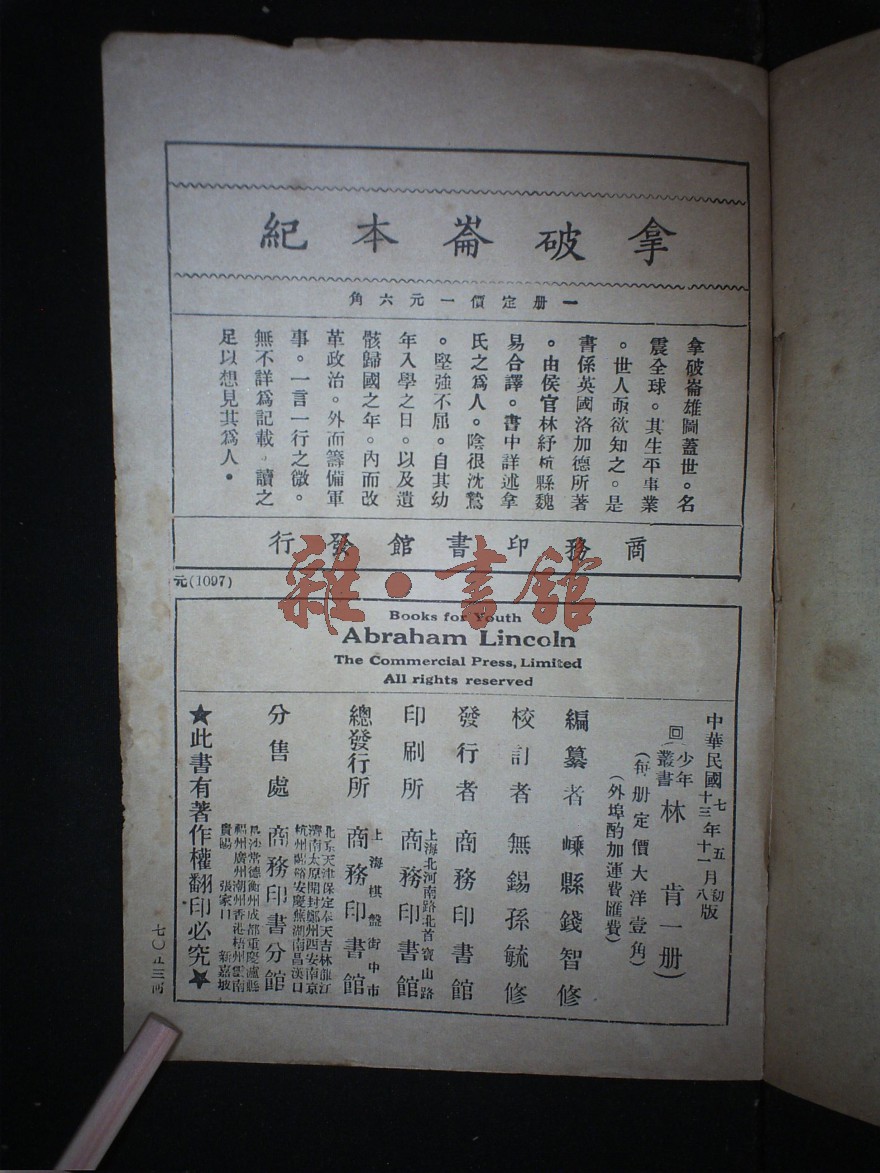 拿破崙本紀
一册定價一元六角
拿破崙雄圖蓋世。名
震全球。其生平事業
。世人亟欲知之。是
書係英國洛加德所著
。由侯官林紓杭縣魏
易合譯。書中詳述拿
氏之爲人。陰很沈鷙
。堅強不屈。自其幼
年入學之日。以及遺
骸歸國之年。內而改
革政治。外而籌備軍
事。一言一行之微。
無不詳爲記載。讀之
足以想見其爲人。
商務印書館發行
元(1097)
雜·書館
Books for Youth
Abraham Lincoln
The Commercial Press, Limited
All rights reserved
中華民國七年五月初版
十三年十一月八版
回(少年叢書林肯一册)
(每册定價大洋壹角)
(外埠酌加運費匯費)
編纂者 嵊縣錢智修
校訂者 無錫孫毓修
發行者 商務印書館
印刷所 上海北河南路北首寶山路 商務印書館
總發行所 上海棋盤街中市 商務印書館
分售處 商務印書分館
北京天津保定奉天吉林龍江
濟南太原開封鄭州西安南京
杭州蘭谿安慶蕪湖南昌漢口
長沙常德衡州成都重慶瀘縣
福州廣州潮州香港梧州雲南
貴陽 張家口 新嘉坡
★此書有著作權翻印必究★
七〇五三